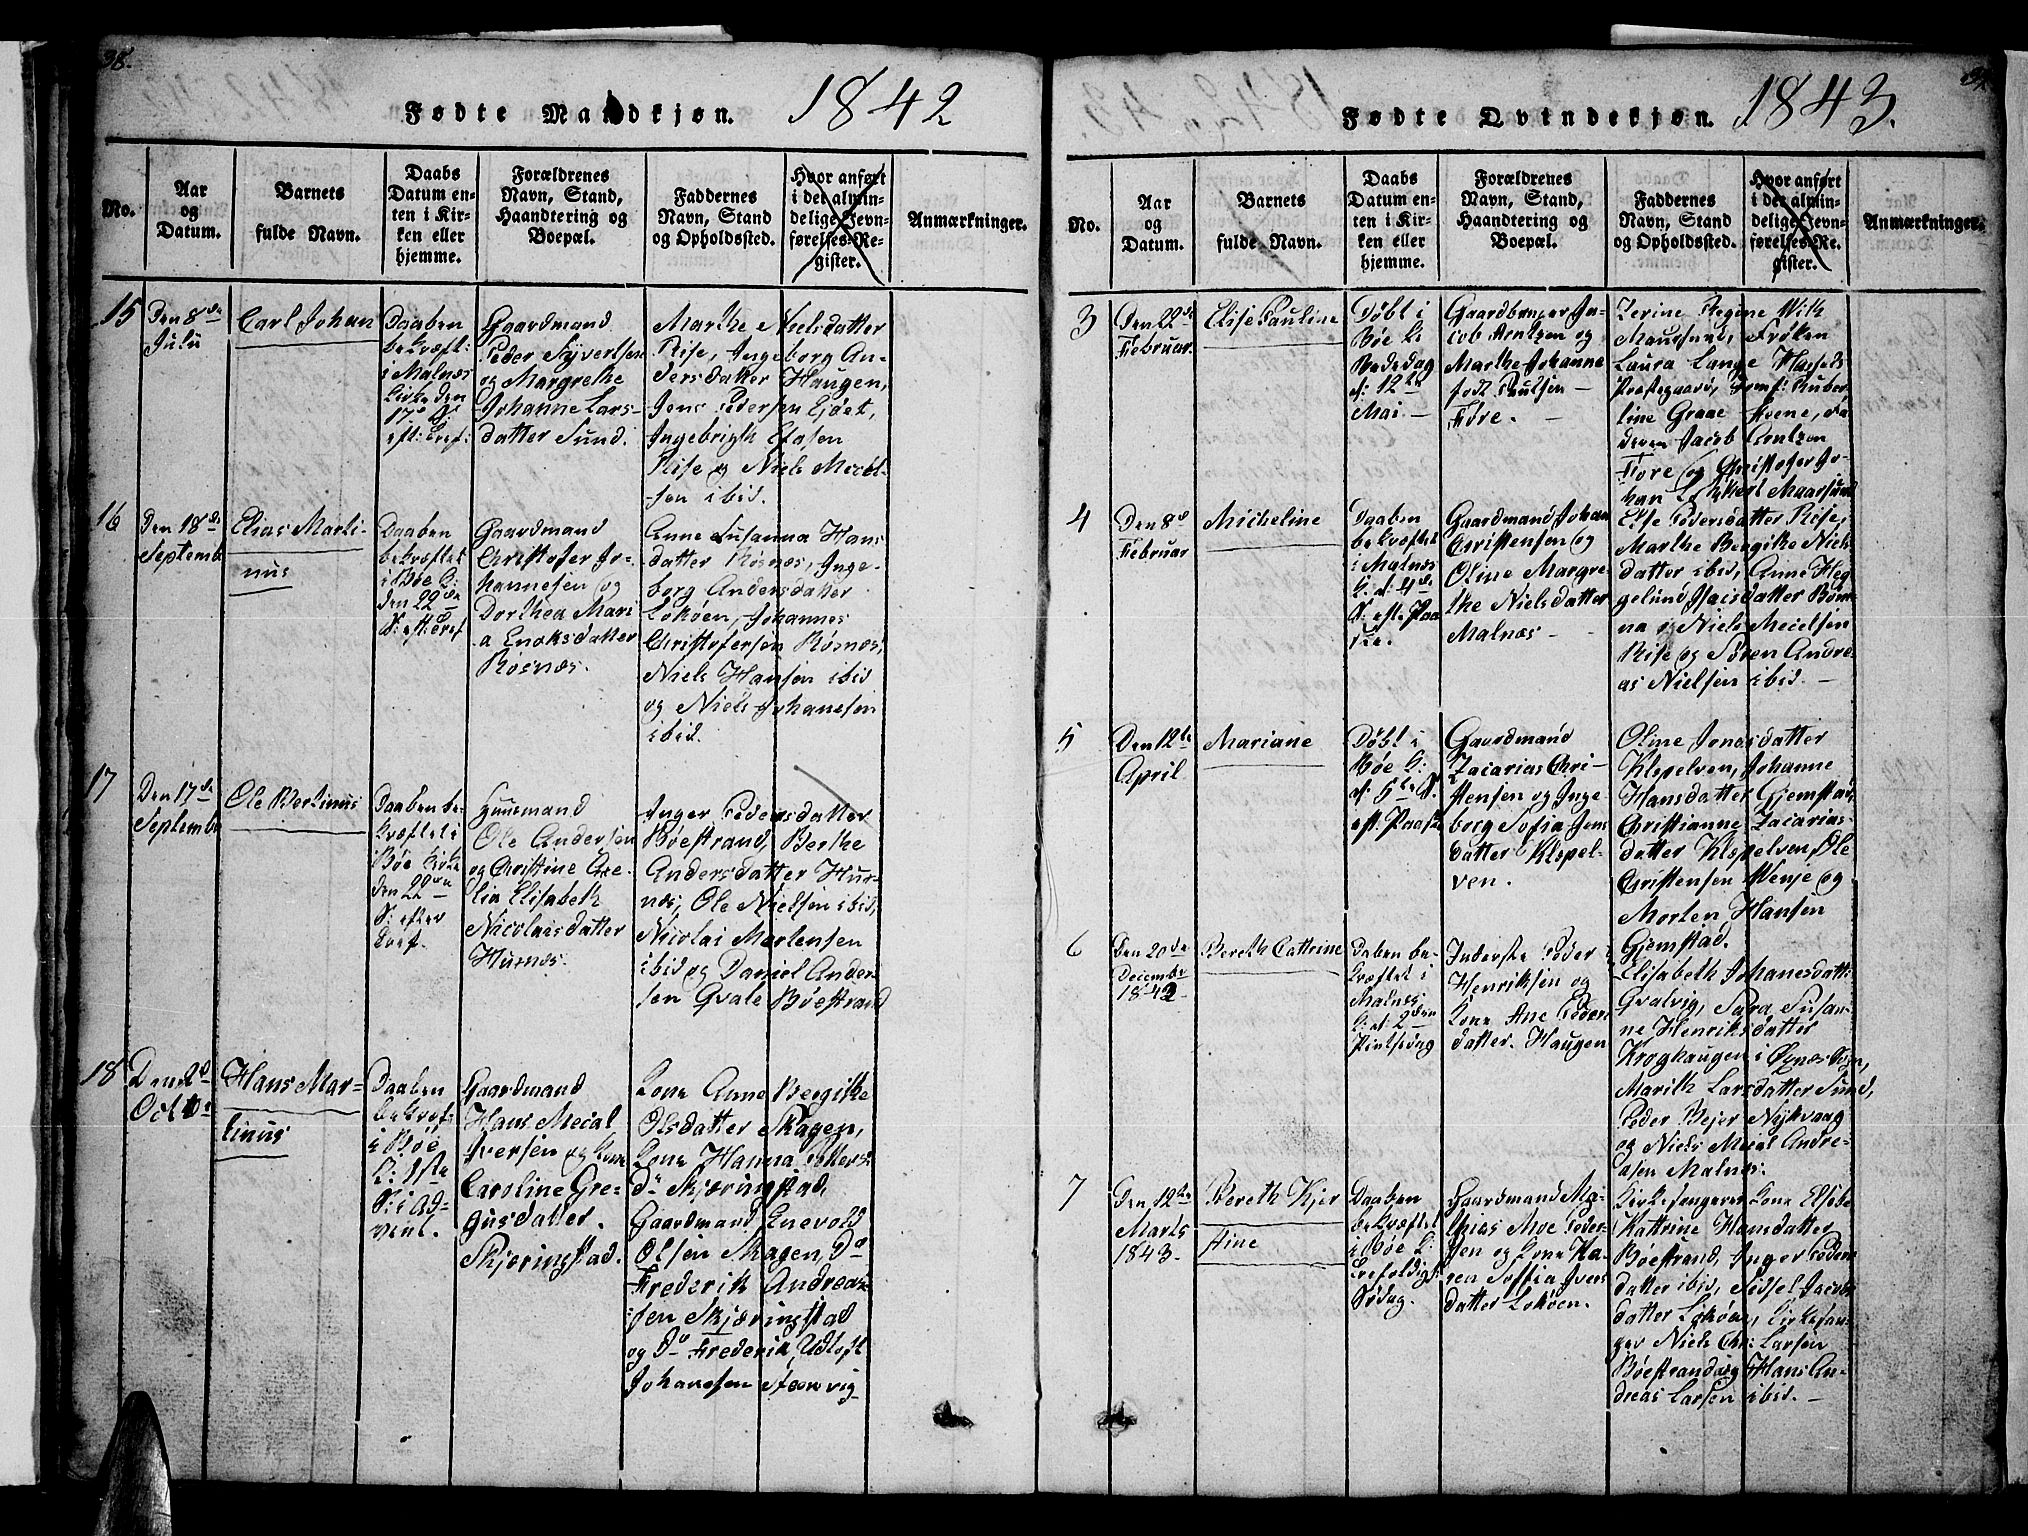 38.
Fødte Mandkjøn. 1842
No.
Aar
og
Datum.
Barnets
fulde Navn.
Daabs
Datum en-
ten i Kir-
ken eller
hjemme.
Forældrenes
Navn, Stand,
Haandtering og
Boepæl.
Faddernes
Navn, Stand
og Opholdssted.
Hvor anført
i det almin-
delige Jevn-
førelses-Re-
gister.
Anmærkninger.
15
Den 8de
Julii
Carl Johan
Daaben
bekræft:
i Malnæs
Kirke den
17de S:
eft: Tref:
Gaardmand
Peder Syvertsen
og Margrethe
Johanne Lars-
datter Sund.
Marthe Nielsdatter
Rise, Ingeborg An-
dersdatter Haugen,
Jens Pedersen
Ingebrigt
Rise og Niels Mecal-
sen ibid.
16
Den 18de
Septembr
Elias Marti-
nus
Daaben
bekræftet
i Bøe K:
den 22de
S: eft: Tref
Gaardmand
Christofer Jo-
hannesen og
Dorthea Mari-
a Enoksdatter
Røsnæs.
Anne Susanna Hans
datter Røsnæs, Inge-
borg Andersdatter
Lokøen, Johannes
Christofersen Røsnæs,
Niels Hansen ibid
og Niels Johanesen
ibid.
17
Den 17de
Septembr
Ole Bertinus
Daaben be-
kræftet i
Bøe Kirke
den 22de
S: efter
Tref.
Huusmand
Ole Andersen
og Christine Are-
lia Elisabeth
Nicolaisdatter
Hurnæs.
Inger Pedersdatter
Bøestrand, Berthe
Andersdatter Hur-
næs, Ole Nielsen ibid,
Nicolai Mortensen
ibid og Daniel Ander
sen Qvale Bøestrand
18
Den 2d
Octbr
Hans Mar-
tinus
Daaben
bekræf:
i Bøe
K: 1ste
S: i Ad-
vent.
Gaardmand
Hans Mecal
Iversen og Kone
Caroline Gre-
gusdatter.
Skjæringstad.
Kone Anne Bergithe
Olsdatter Skagen,
Kone Hanna Peters-
dr Skjæringstad,
Gaardmand Enevold
Olsen Skagen, Do
Frederik Andrea-
sen Skjæringstad
og Do Frederik Udtoft
Johanesen Steenvig
39
Fødte Qvindekjøn. 1843.
No.
Aar
og
Datum.
Barnets
fulde Navn.
Daabs
Datum en-
ten i Kir-
ken eller
hjemme.
Forældrenes
Navn, Stand,
Haandtering og
Boepæl.
Faddernes
Navn, Stand
og Opholdssted.
Hvor anført
i det almin-
delige Jevn-
førelses-Re-
gister.
Anmærkninger.
3
Den 22de
Februar.
Elise Pauline
Døbt i
Bøe K:
Bededag
d: 12te
Mai.
Gaardbruger Ja-
cob Arntzen og
Marthe Johanne
født Poulsen
Føre.
Zerine Regine With
Maursund, Frøken
Laura Lange Hassels
Præstegaard, Jomf: Huber-
line Graae Steene, Fa-
deren Jacob Arntzen
Føre og Christofer Jo-
han Lockert Maarsund
4
Den 8de
Februar
Micheline
Daaben
bekræftet
i Malnæs
K: d: 4de
S: eft: Paa
ske.
Gaardmand Johan
Christensen og
Oline Margre-
the Nielsdatter
Malnæs
Else Pedersdatter Rise,
Marthe Bergithe Niels
datter ibid, Anne Heg
gelund Isaisdatter Bøm-
na og Niels Mecelsen
Rise og Søren Andre-
as Nielsen ibid.
5
Den 12te
April
Mariane
Døbt i
Bøe K:
d: 5te S.
eft: Paaske
Gaardmand
Zacarias Chri-
stensen og Inge-
borg Sofia Jens
datter Klepel-
ven.
Oline Jonsdatter
Klepelven, Johanne
Hansdatter Gjemstad,
Christianne Zacarias-
datter Klepelven, Ole
Christensen Wenje og
Morten Hansen
Gjemstad.
6
Den 20de
Decembr
1842.
Bereth Cattrine
Daaben be-
kræftet i
Malnæs
K: d: 2den
Pintsedag
Inderste Peder
Henriksen og
Kone Ane Peders
datter. Haugen
Elisabeth Johanesdatt:
Qvalvig, Sara Susan-
ne Henriksdatter
Kroghaugen i Øxnæs Sogn,
Marith Larsdatter Sund,
Peder Bejer Nykvaag
og Niels Mecal Andre-
asen Malnæs.
7
Den 12te
Marts
1843.
Bereth Kjer
stine
Daaben
bekræftet
i Bøe K:
Trefoldigh:
Sødag.
Gaardsmand Ma-
thias Moe Peder-
sen og Kone Ka-
ren Soffia Ivers
datter Lokøen.
Kirkesangeres Kone Elsebe
Kattrine Hansdatter
Bøestrand, Inger Peders
datter ibid, Sidsel Jacobs
datter Lokøen, Kirkesan-
ger Niels Chr: Larsen
Bøestrand og Hans An-
dreas Larsen ibid.